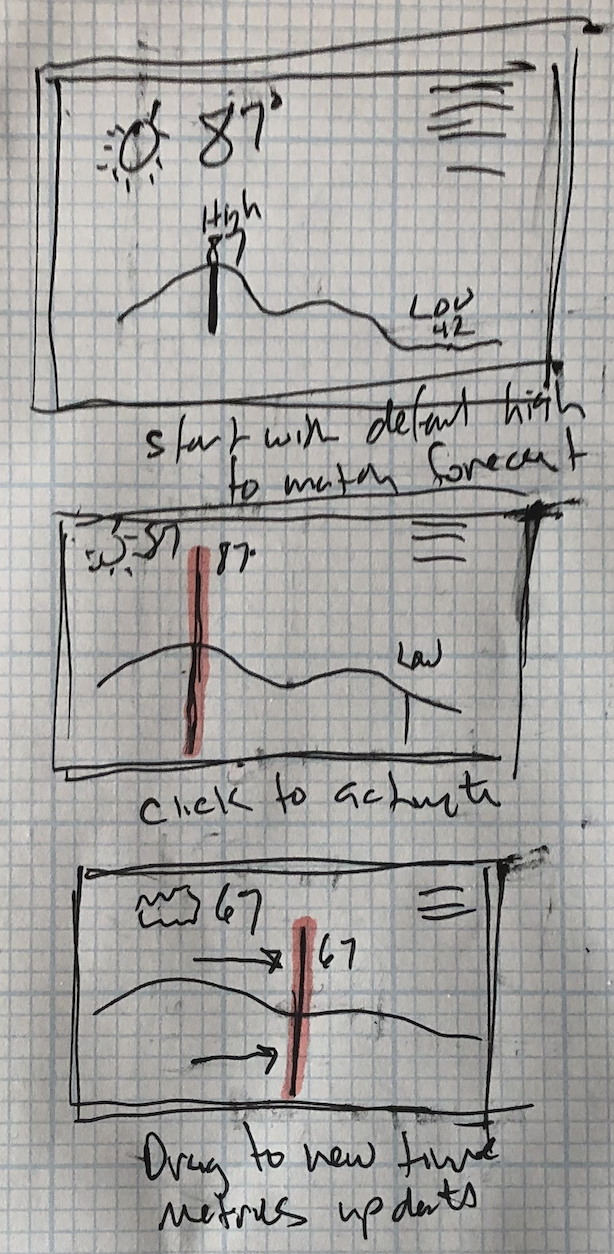 87°
High
87
Low
42
start with default high
to match forecast
87 87°
Low
click to activate
67
67
Drag to new time
metrics updates